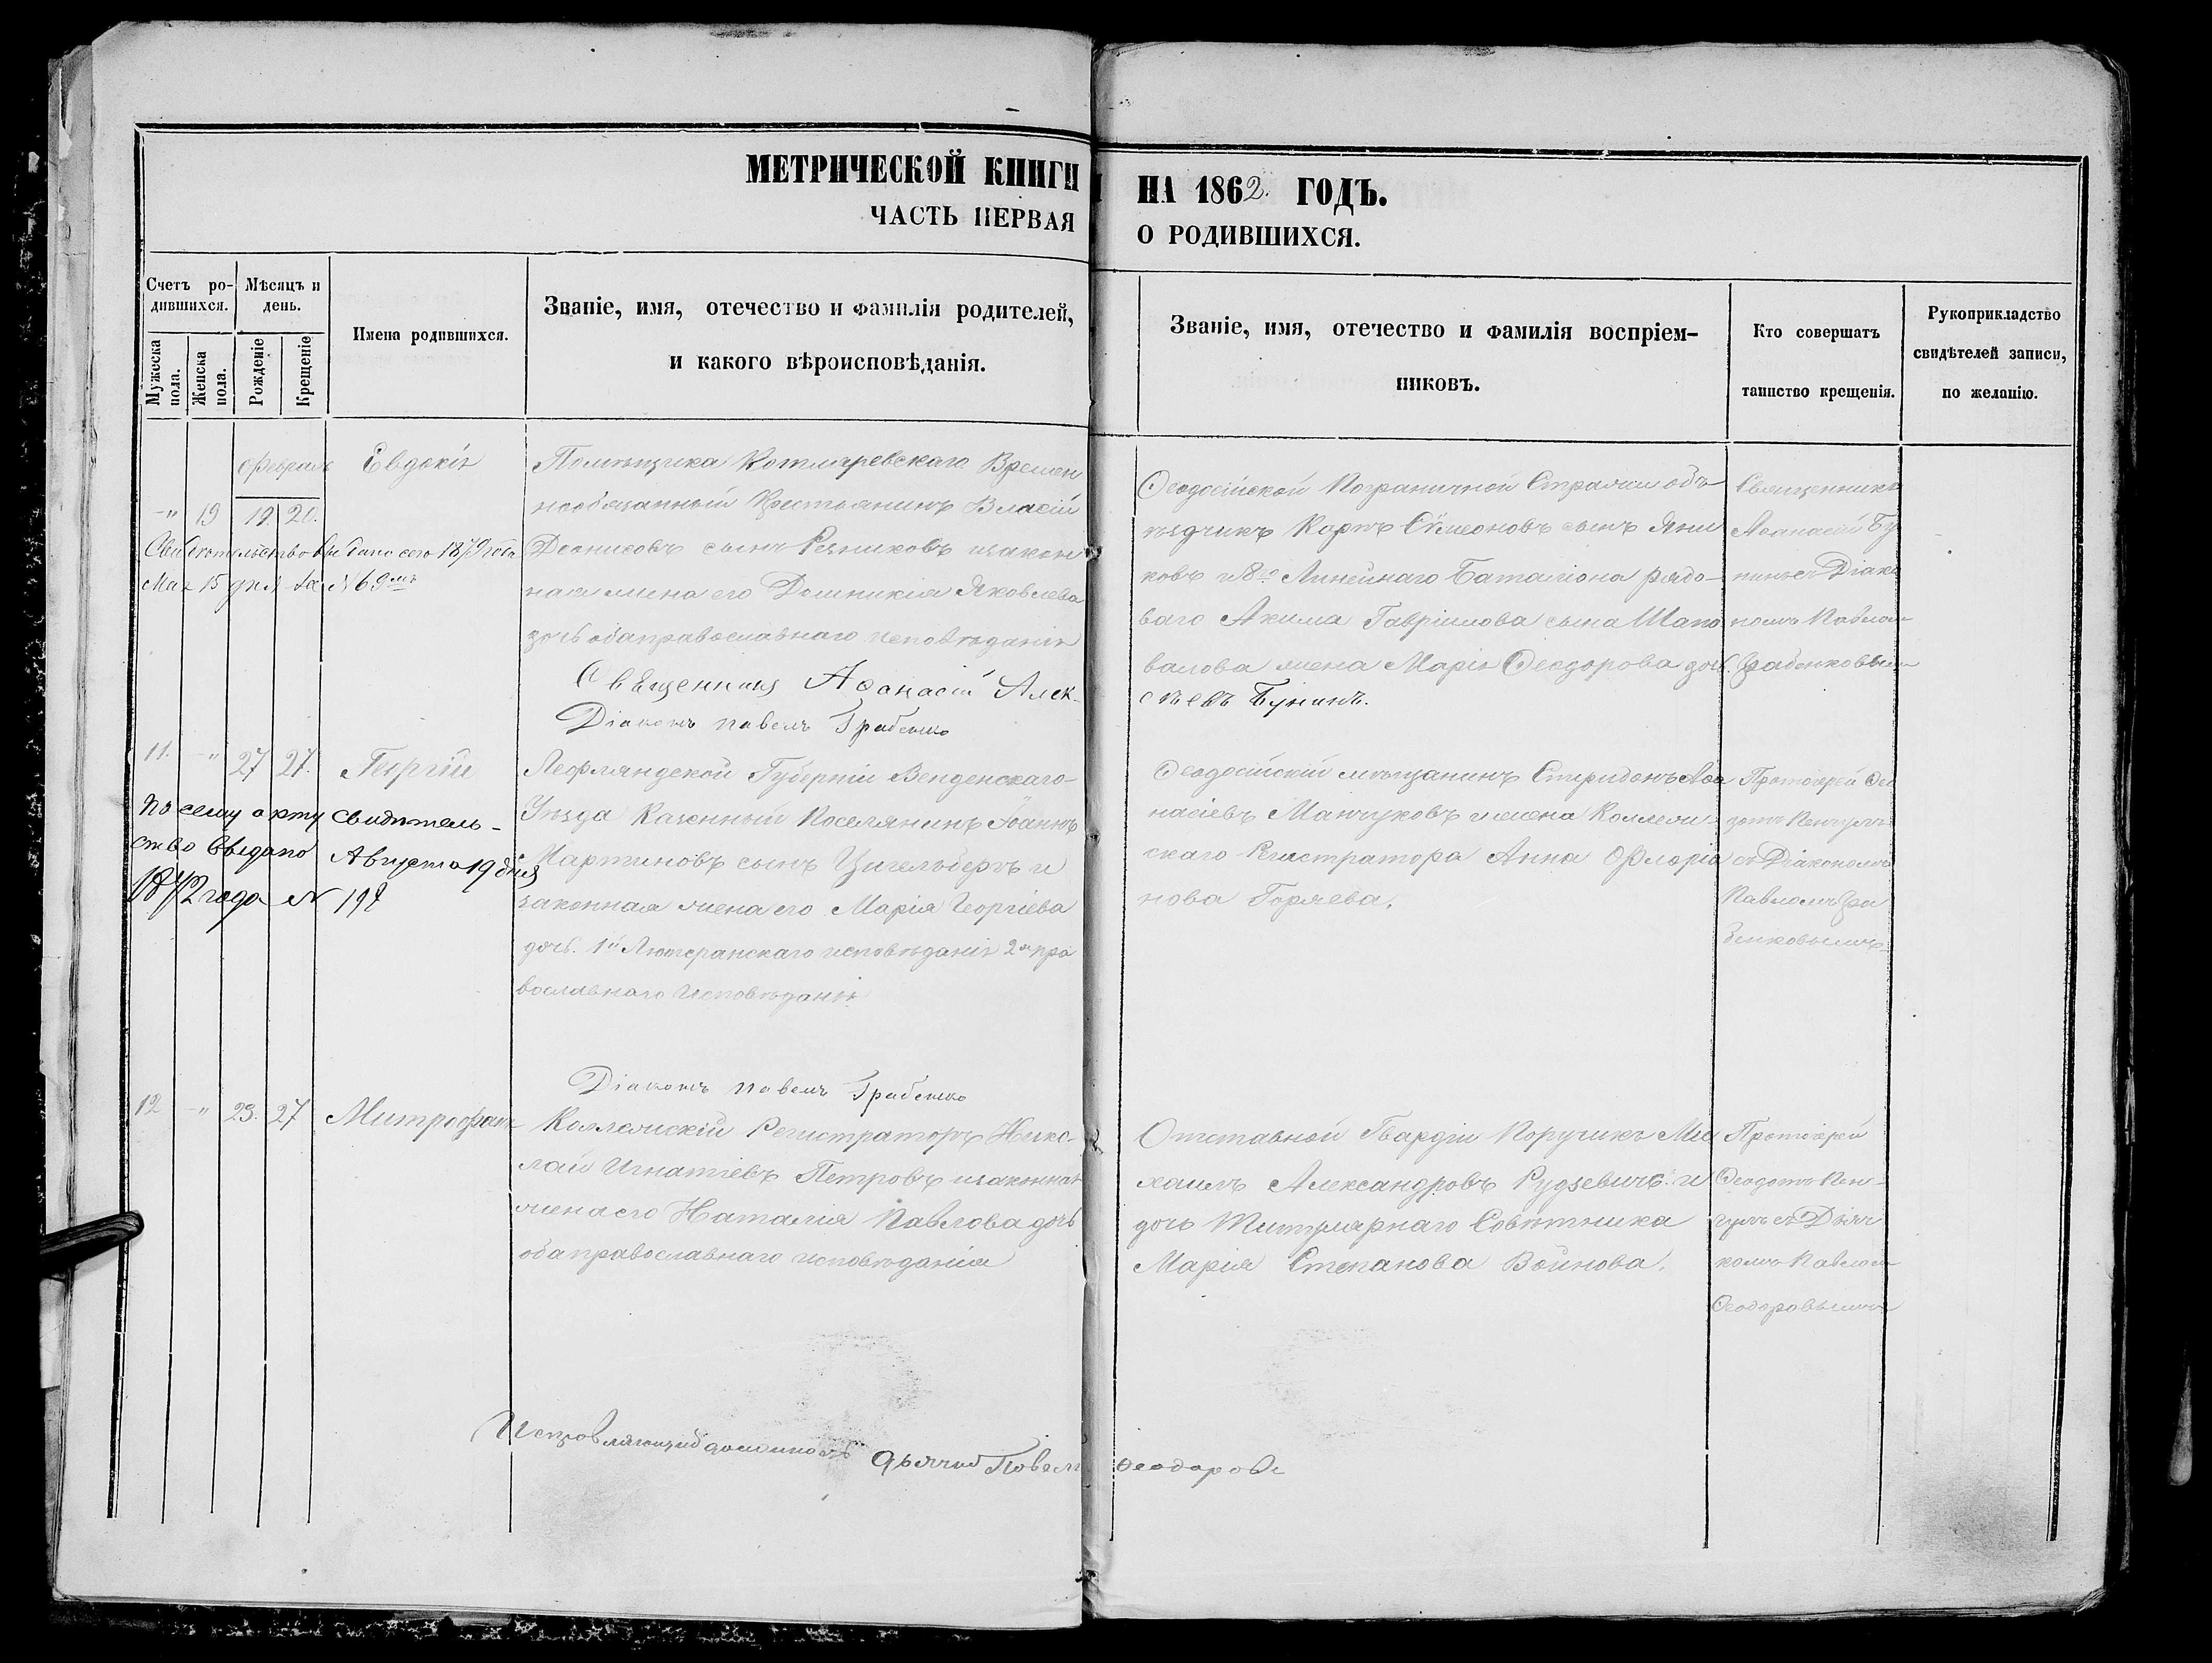 МЕТРИЧЕСКОЙ КНИГИ НА 1862. ГОДЪ.
ЧАСТЬ ПЕРВАЯ О РОДИВШИХСЯ.
Счетъ ро-
дившихся.
Мужеска
пола.
Женска
пола.
Мѣсяцъ и
день.
Рожденіе
Крещеніе
Имена родившихся.
Званіе, имя, отечество и фамилія родителей,
и какого вѣроисповѣданія.
Званіе, имя, отечество и фамилія воспріем-
никовъ.
Кто совершатъ
таинство крещенія.
Рукоприкладство
свидѣтелей записи,
по желанію.
Февраль
-"- 19 19. 20.
Евдокія
Свидѣтельство выдано сего 1879 года
Мая 15 дня за № 69мъ
Помѣщика Котляревскаго Времен
нообязанный Крестьянинъ Власій
Деонисовъ сынъ Резниковъ и закон
ная жена его Домникия Яковлева
дочь оба православнаго исповѣданія
Ѳеодосійской Пограничной Стражи объ
ѣздчикъ Карпъ Сѵмеоновъ сынъ Яни
ковъ и 8го Линейнаго Баталіона рядо-
ваго Акима Гавріилова сына Шапо
валова жена Марія Ѳеодорова дочь.
Священникъ
Аѳанасій Бу
нинъ съ Діако
номъ Павлом
Грабенковым
Священникъ Аѳанасій Алек-
сѣевъ Бунинъ.
Діаконъ Павелъ Грабенко
11. -"- 27 27.
Георгій
По сему акту свидѣтель-
ство выдано Августа 19 дня
1872 года №
Лефляндской Губерніи Венденскаго
Уѣзда Казенный Поселянинъ Іоаннъ
Мартиновъ сынъ Цигельберъ и
законная жена его Марія Георгіева
дочь. 1й Лютеранскаго исповѣданія 2я пра
вославнаго Исповѣданія
Ѳеодосійскій мѣщанинъ Спиридонъ Аѳа
насіевъ Манчуковъ и жена Коллежи
скаго Регистратора Анна Флорiа
нова Горяева.
Протоіерей Ѳео
дотъ Кенчулъ
съ Діакономъ
Павломъ Гра
бенковымъ
Діаконъ Павелъ Грабенко
12 -"- 23. 27
Митрофанъ
Коллежскій Регистраторъ Нико-
лай Игнатіевъ Петровъ и законная
жена его Наталія Павлова дочь
оба православнаго исповѣданія
Отставной Гвардіи Поручикъ Ми
хаилъ Александровъ Рудзевичъ и
дочь Титулярнаго Совѣтника
Марія Степанова Войнова.
Протоіерей
Ѳеодотъ Кен-
чулъ съ Дьяч
комъ Павлом
Ѳеодоровымъ
Исправляющій должность дьячка Павелъ Ѳеодоровъ